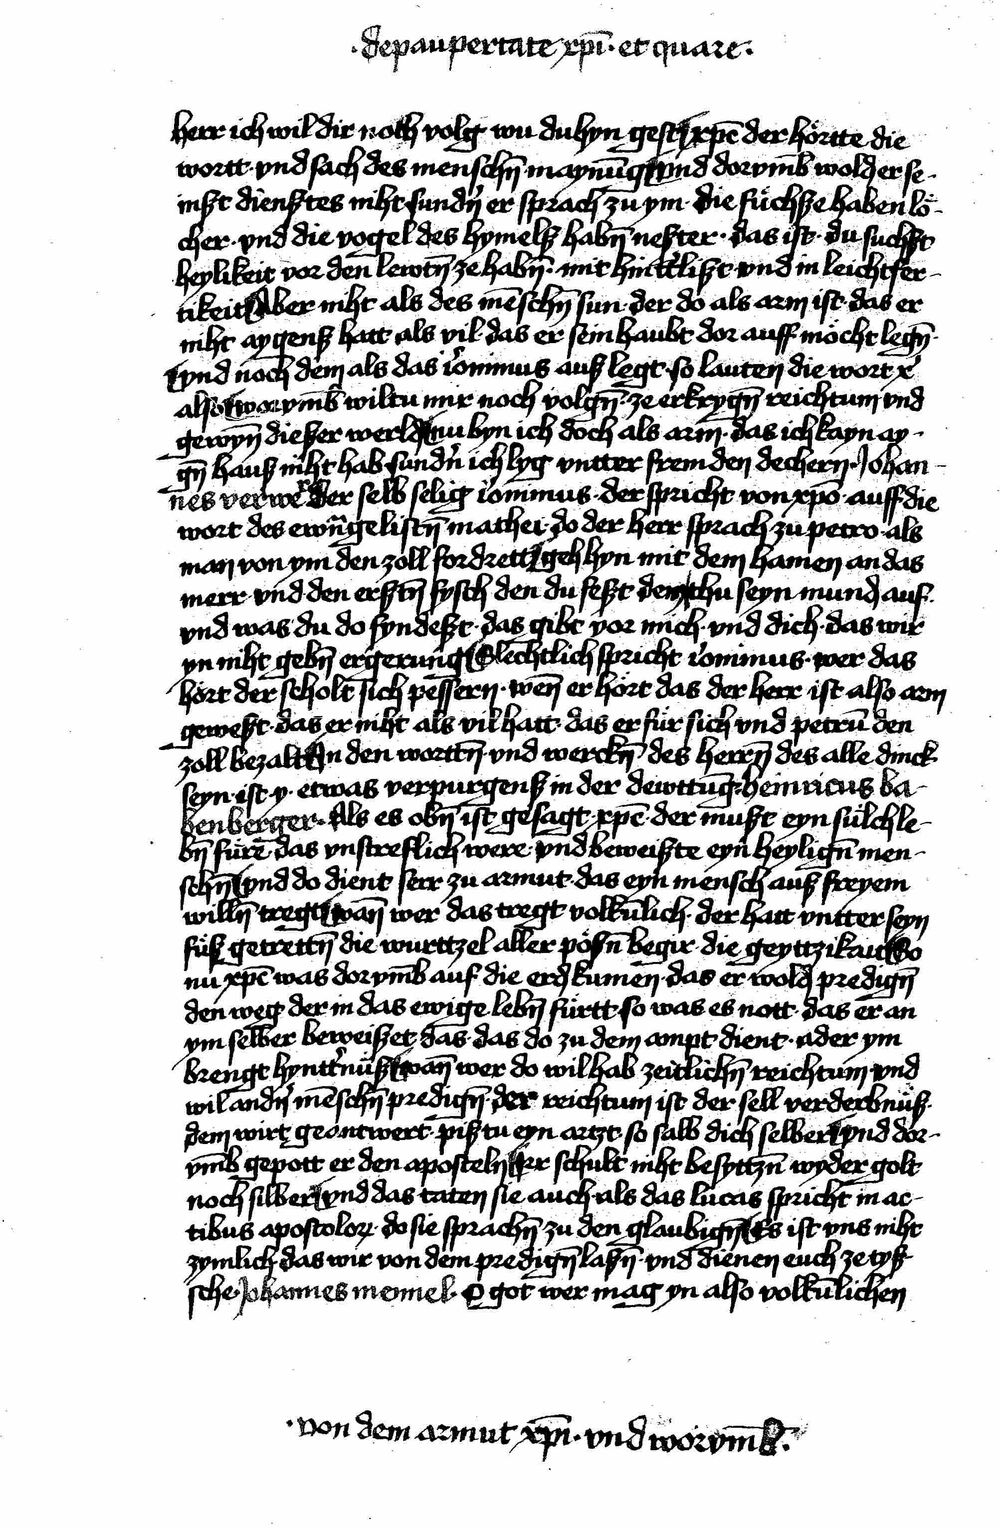 ·de paupertate xp̄i· et quare·
herr ich wil dir noch volg wu du hyn gest xp̄c der hörtte die
wortt· vnd sach des menschn̄ maynūg vnd dorvmb wold er se-
inßt dienßtes niht sundn̄ er sprach zu ym· die füchße haben lö-
cher· vnd die vogel des hymelß habn̄ neßter· das ist· du suchßt
heylikeit vor den lewtn̄ ze habn̄· mit hinttlißt· vnd in leichtfer-
tikeit Aber niht als des mēschn̄ sun· der do als arm ist· das er
niht aygenß hatt als vil das er sein haubt dor auff möcht legn̄·
vnd noch dem als das iˀonimus auß legt· so lauten die wort xˀ
also worvmb wiltu mir noch volgn̄· ze erkrygn̄ reichtum vnd
gewyn̄ dießer werld nu byn ich doch als arm· das ich kayn ay-
gn̄ hauß niht hab sundn̄ ich lyg vntter fremden dechern· Johan-
nes verweˀ Der selb selig iˀonimus· der spricht von xp̄o· auff die
wort des ewn̄gelistn̄ mathei do der herr sprach zu petro· als
man von ym den zoll fordrett geh hyn mit dem hamen an das
merr· vnd den erßtn̄ fysch den du feßt· dem thu seyn mund auf·
vnd was du do fyndeßt· das gibt vor mich· vnd dich· das wir
yn niht gebn̄ ergerung Slechtlich spricht iˀonimus· wer das
hört der scholt sich pessern· wen̄ er hört das der herr ist also arm
geweßt· das er niht als vil hatt· das er für sich vnd petrū den
zoll bezalt In den worttn̄· vnd werckn̄ des herrn̄ des alle dinck
seyn· ist· y· etwas verpurgenß in der dewttūg· heinricus ba-
benberger· Als es obn̄ ist gesagt· xp̄c· der mußt eyn sülch le-
bn̄ fürē· das vnstreflich were· vnd beweißte eyn̄ heylign̄ men-
schn̄ vnd do dient serr zu armut· das eyn mensch auß freyem
willn̄ tregt wan̄ wer das tregt volkūlich· der hatt vntter seyn
füß getrettn̄ die wurttzel aller pößn̄ begir die geyttzikait So
nu xp̄c was dorvmb auf die erd kumen· das er wold predign̄
den weg der in das ewige lebn̄ fürtt· so was es nott· das er an
ym selber beweißet das· das do zu dem ampt dient· ader ym
brengt hynttˀnüß wan̄ wer do wil hab zeitlichn̄ reichtum vnd
wil andn̄ mēschn̄ predign̄· der reichtum ist der sell verderbnüß·
dem wirt geantwert· pißtu eyn artzt· so salb dich selber vnd dor-
vmb gepott er den aposteln Ir schult niht besyttzn̄ wyder golt
noch silber vnd das taten sie auch als das lucas spricht in ac-
tibus apostolorꝝ· do sie sprachn̄ zu den glaubign̄ Es ist vns niht
zymlich das wir von dem predign̄ laßn̄· vnd dienen euch ze tyß-
sche· Johannes mentel· O got wer mag yn also volkūlichen
·von dem armut xp̄i· vnd worvmb·